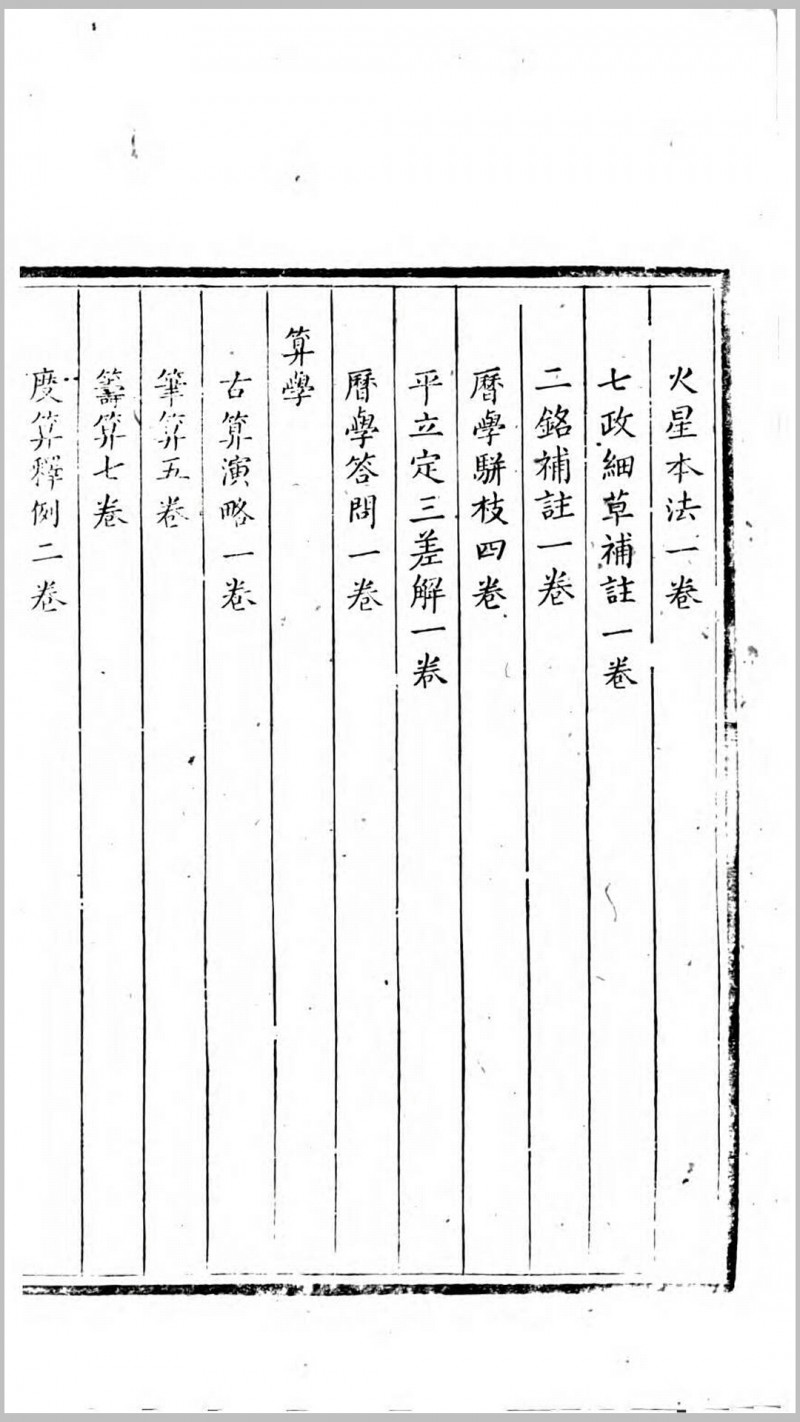 火星本法一卷
七政細草補註一卷
二銘補註一卷
曆學駢枝四卷
平立定三差解一卷
曆學答問一卷
算學
古算演略一卷
筆算五卷
籌算七卷
度算釋例二卷